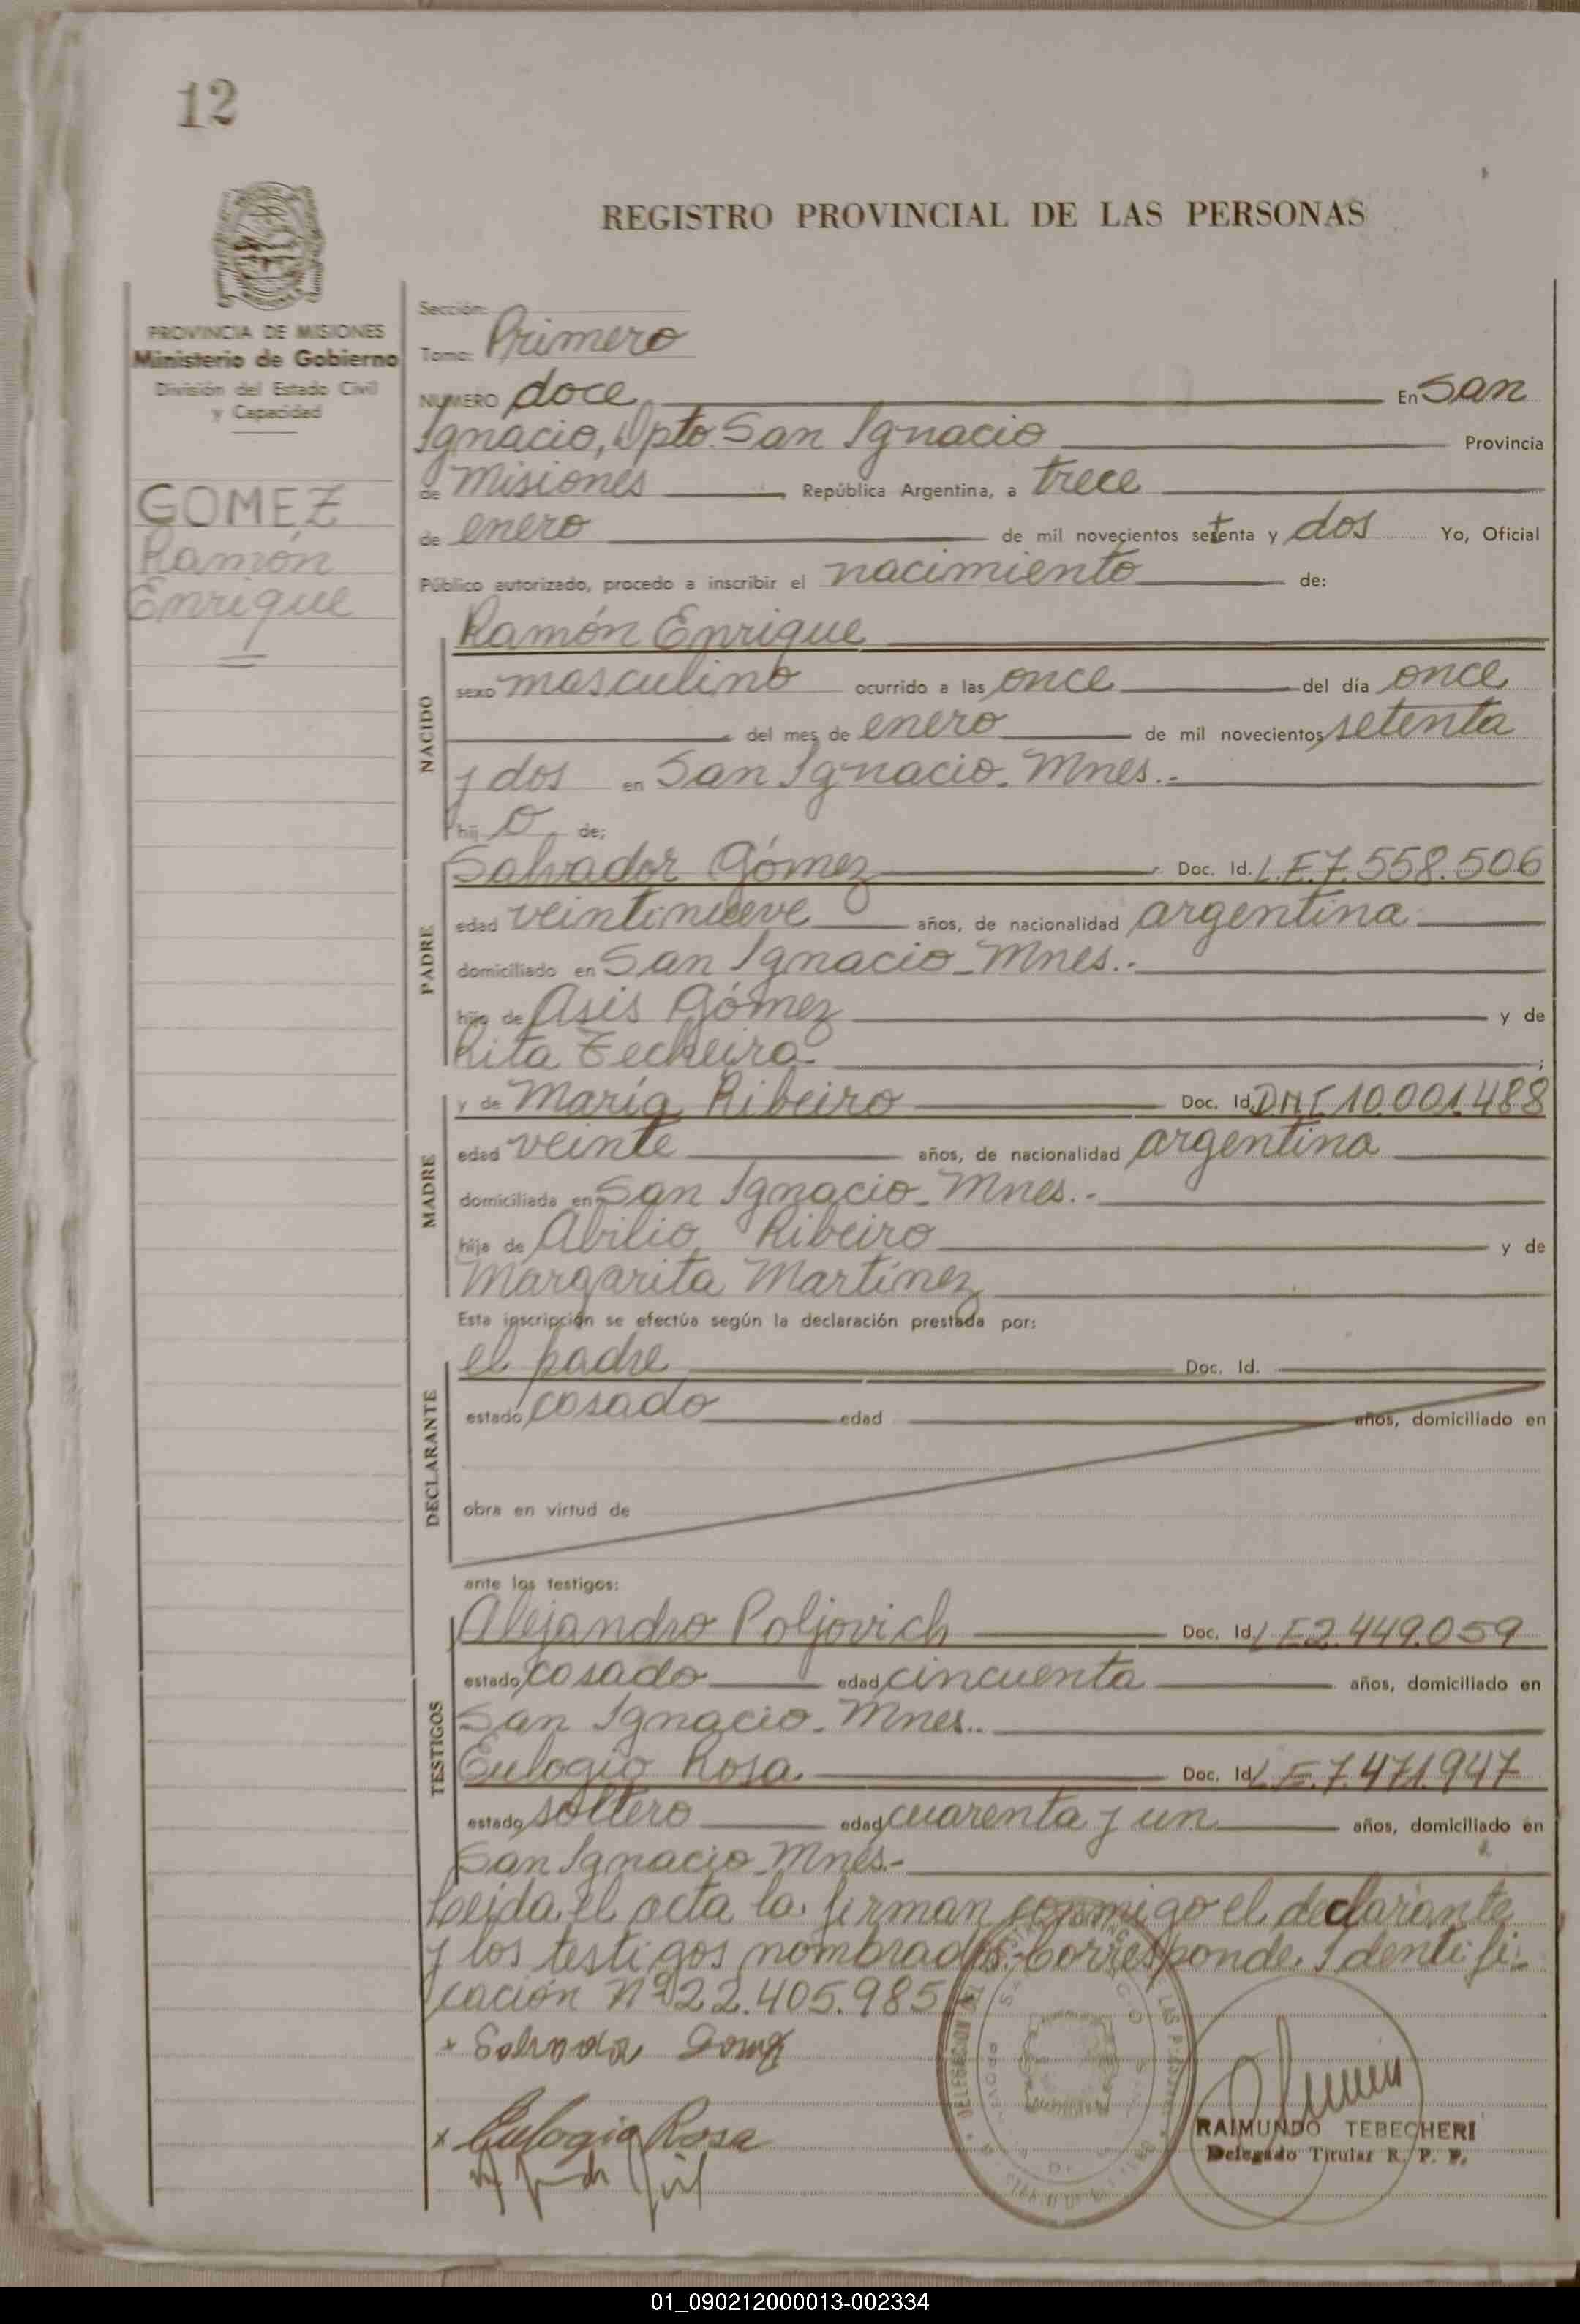 12
REGISTRO PROVINCIAL DE LAS PERSONAS
PROVINCIA DE MISIONES
Ministerio de Gobierno
División del Estado Civil
y Capacidad
GOMEZ
Ramón
Enrique
Sección:
Tomo: Primero
NUMERO doce En San
Ignacio, Dpto. San Ignacio Provincia
de Misiones República Argentina, a trece
de enero de mil novecientos setenta y dos Yo, Oficial
Público autorizado, procedo a inscribir el nacimiento de:
NACIDO
Ramón Enrique
sexo masculino ocurrido a las once del día once
del mes de enero de mil novecientos setenta
y dos en San Ignacio. Mnes.-
hij o de:
PADRE
Salvador Gómez Doc. Id. L.E.7.558.506
edad veintinueve años, de nacionalidad argentina
domiciliado en San Ignacio - Mnes.-
hijo de Asis Gómez y de
Rita Techeira.
MADRE
y de María Ribeiro Doc. Id. DNI 10.001.488
edad veinte años, de nacionalidad argentina
domiciliada en San Ignacio - Mnes.-
hija de Abilio Ribeiro y de
Margarita Martínez
Esta inscripción se efectúa según la declaración prestada por:
DECLARANTE
el padre Doc. Id.
estado casado edad años, domiciliado en
obra en virtud de
ante los testigos:
TESTIGOS
Alejandro Poljovich Doc. Id. LE2.449.059
estado casado edad cincuenta años, domiciliado en
San Ignacio - Mnes..
Eulogio Rosa Doc. Id. L.E.7.471.947
estado soltero edad cuarenta y un años, domiciliado en
San Ignacio - Mnes.-
Leida el acta la firman conmigo el declarante
y los testigos nombrados.- Corresponde Identifi-
cación Nº 22.405.985
x Salvador Gomez
x Eulogio Rosa
RAIMUNDO TEBECHERI
Delegado Titular R. P. P.
01_090212000013-002334